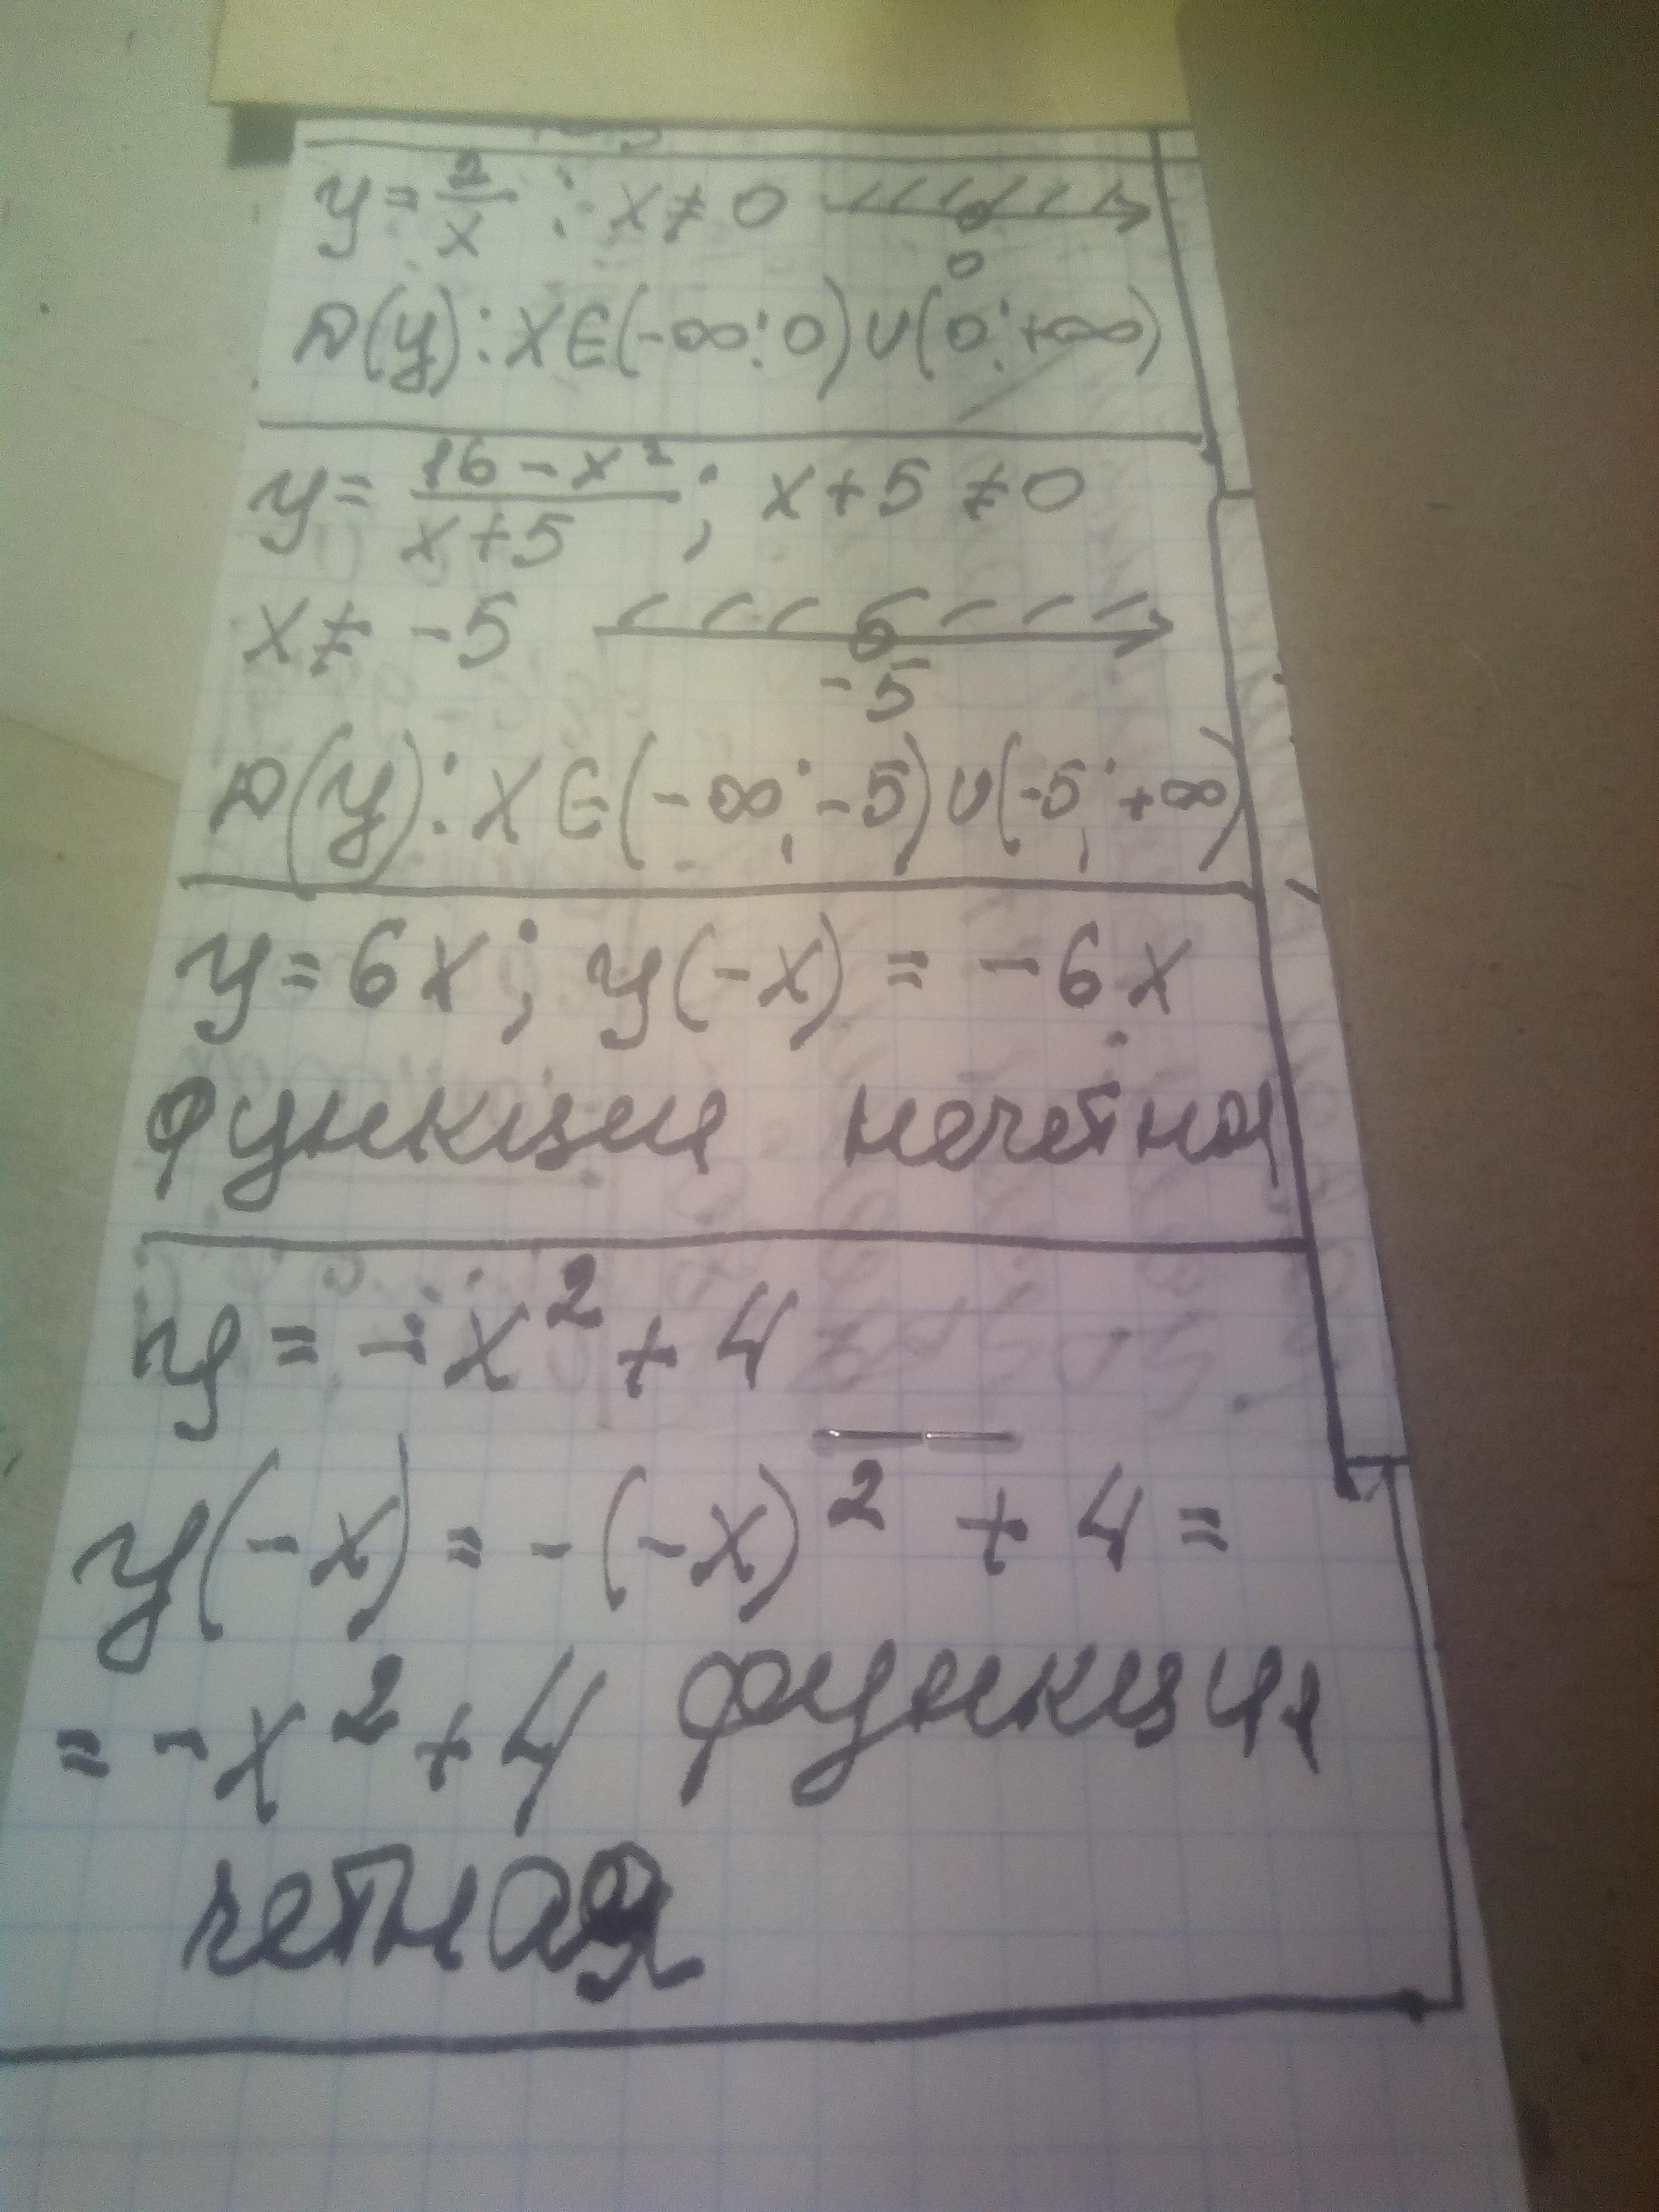 y = 2/x ; x ≠ 0
0
D(y): x ∈ (-∞; 0) ∪ (0; +∞)
y = 16 - x² / x + 5 ; x + 5 ≠ 0
x ≠ -5
-5
D(y): x ∈ (-∞; -5) ∪ (-5; +∞)
y = 6x; y(-x) = -6x
функция нечетная
y = -x² + 4
y(-x) = -(-x)² + 4 =
= -x² + 4 функция
четная